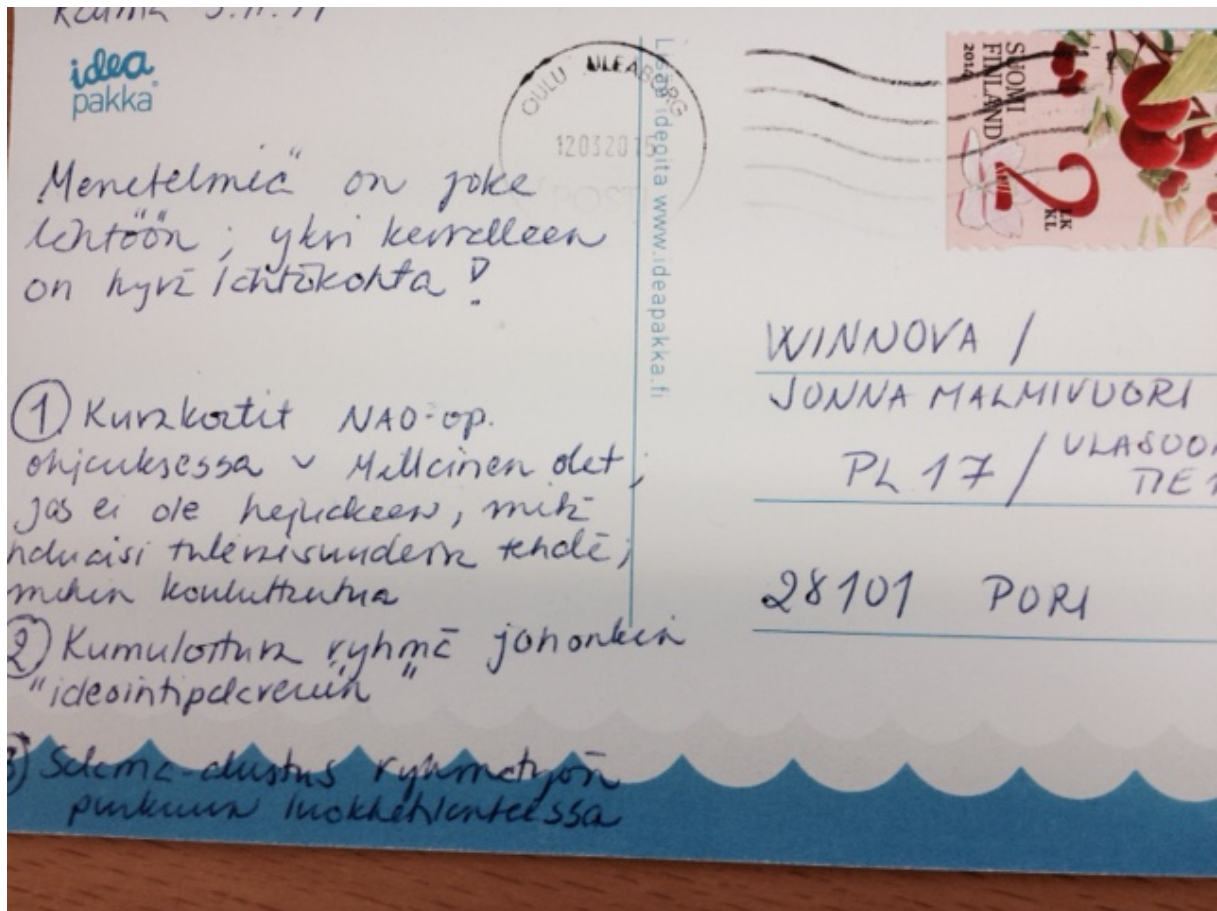 idea
pakka
Menetelmiä on joka
lähtöön; yksi kerrallaan
on hyvä lähtökohta!
① Kuvakortit NAO-op.
ohjauksessa ~ Millainen olet,
jos ei ole hajuakaan, mitä
haluaisi tulevaisuudessa tehdä;
mihin kouluttautua
② Kumuloituva ryhmä johonkin
"ideointipalaveriin"
3) Salama-alustus ryhmätyön
purkuun luokkatilanteessa
OULU ULEÅBORG
12032015
POSTI
Lisää ideoita www.ideapakka.fi
SUOMI
FINLAND
2014
2
LK
KL
WINNOVA /
JONNA MALMIVUORI
PL 17 /
TIE
28101 PORI